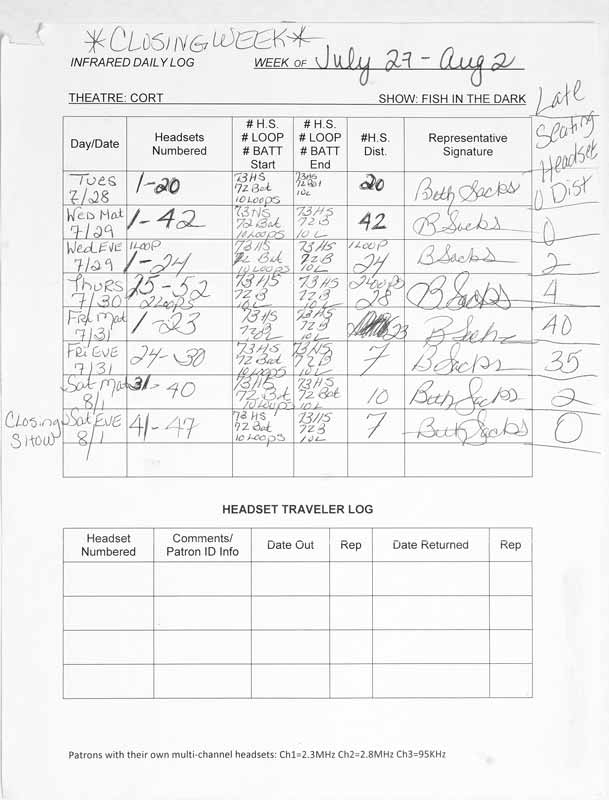 *CLOSING WEEK*
INFRARED DAILY LOG WEEK OF July 27 - Aug 2
THEATRE: CORT SHOW: FISH IN THE DARK
Late Seating Headset
Day/Date Headsets Numbered # H.S. # LOOP # BATT Start # H.S. # LOOP # BATT End #H.S. Dist. Representative Signature
Tues 7/28 1-20 73HS 72 Bat 10 Loops 73HS 72 Bat 10L 20 Beth Sacks 0 Dist
Wed Mat 7/29 1-42 73HS 72 Bat 10 Loops 73HS 72B 10L 42 B Sacks 0
Wed EVE 7/29 1 LOOP 1-24 73HS 72 Bat 10 Loops 73HS 72B 10L 1 LOOP 24 B Sacks 2
Thurs 7/30 25-52 2 Loops 73HS 72B 10L 73HS 72B 10L 2 Loops 28 B Sacks 4
Fri Mat 7/31 1-23 73HS 72B 10L 73HS 72B 10L 23 B Sacks 40
Fri EVE 7/31 24-30 73HS 72 Bat 10 Loops 73HS 72B 10L 7 B Sacks 35
Sat Mat 8/1 31-40 73HS 72 Bat 10 Loops 73HS 72 Bat 10L 10 Beth Sacks 2
Closing Show Sat EVE 8/1 41-47 73HS 72 Bat 10 Loops 73HS 72B 10L 7 Beth Sacks 0
HEADSET TRAVELER LOG
Headset Numbered Comments/ Patron ID Info Date Out Rep Date Returned Rep
Patrons with their own multi-channel headsets: Ch1=2.3MHz Ch2=2.8MHz Ch3=95KHz